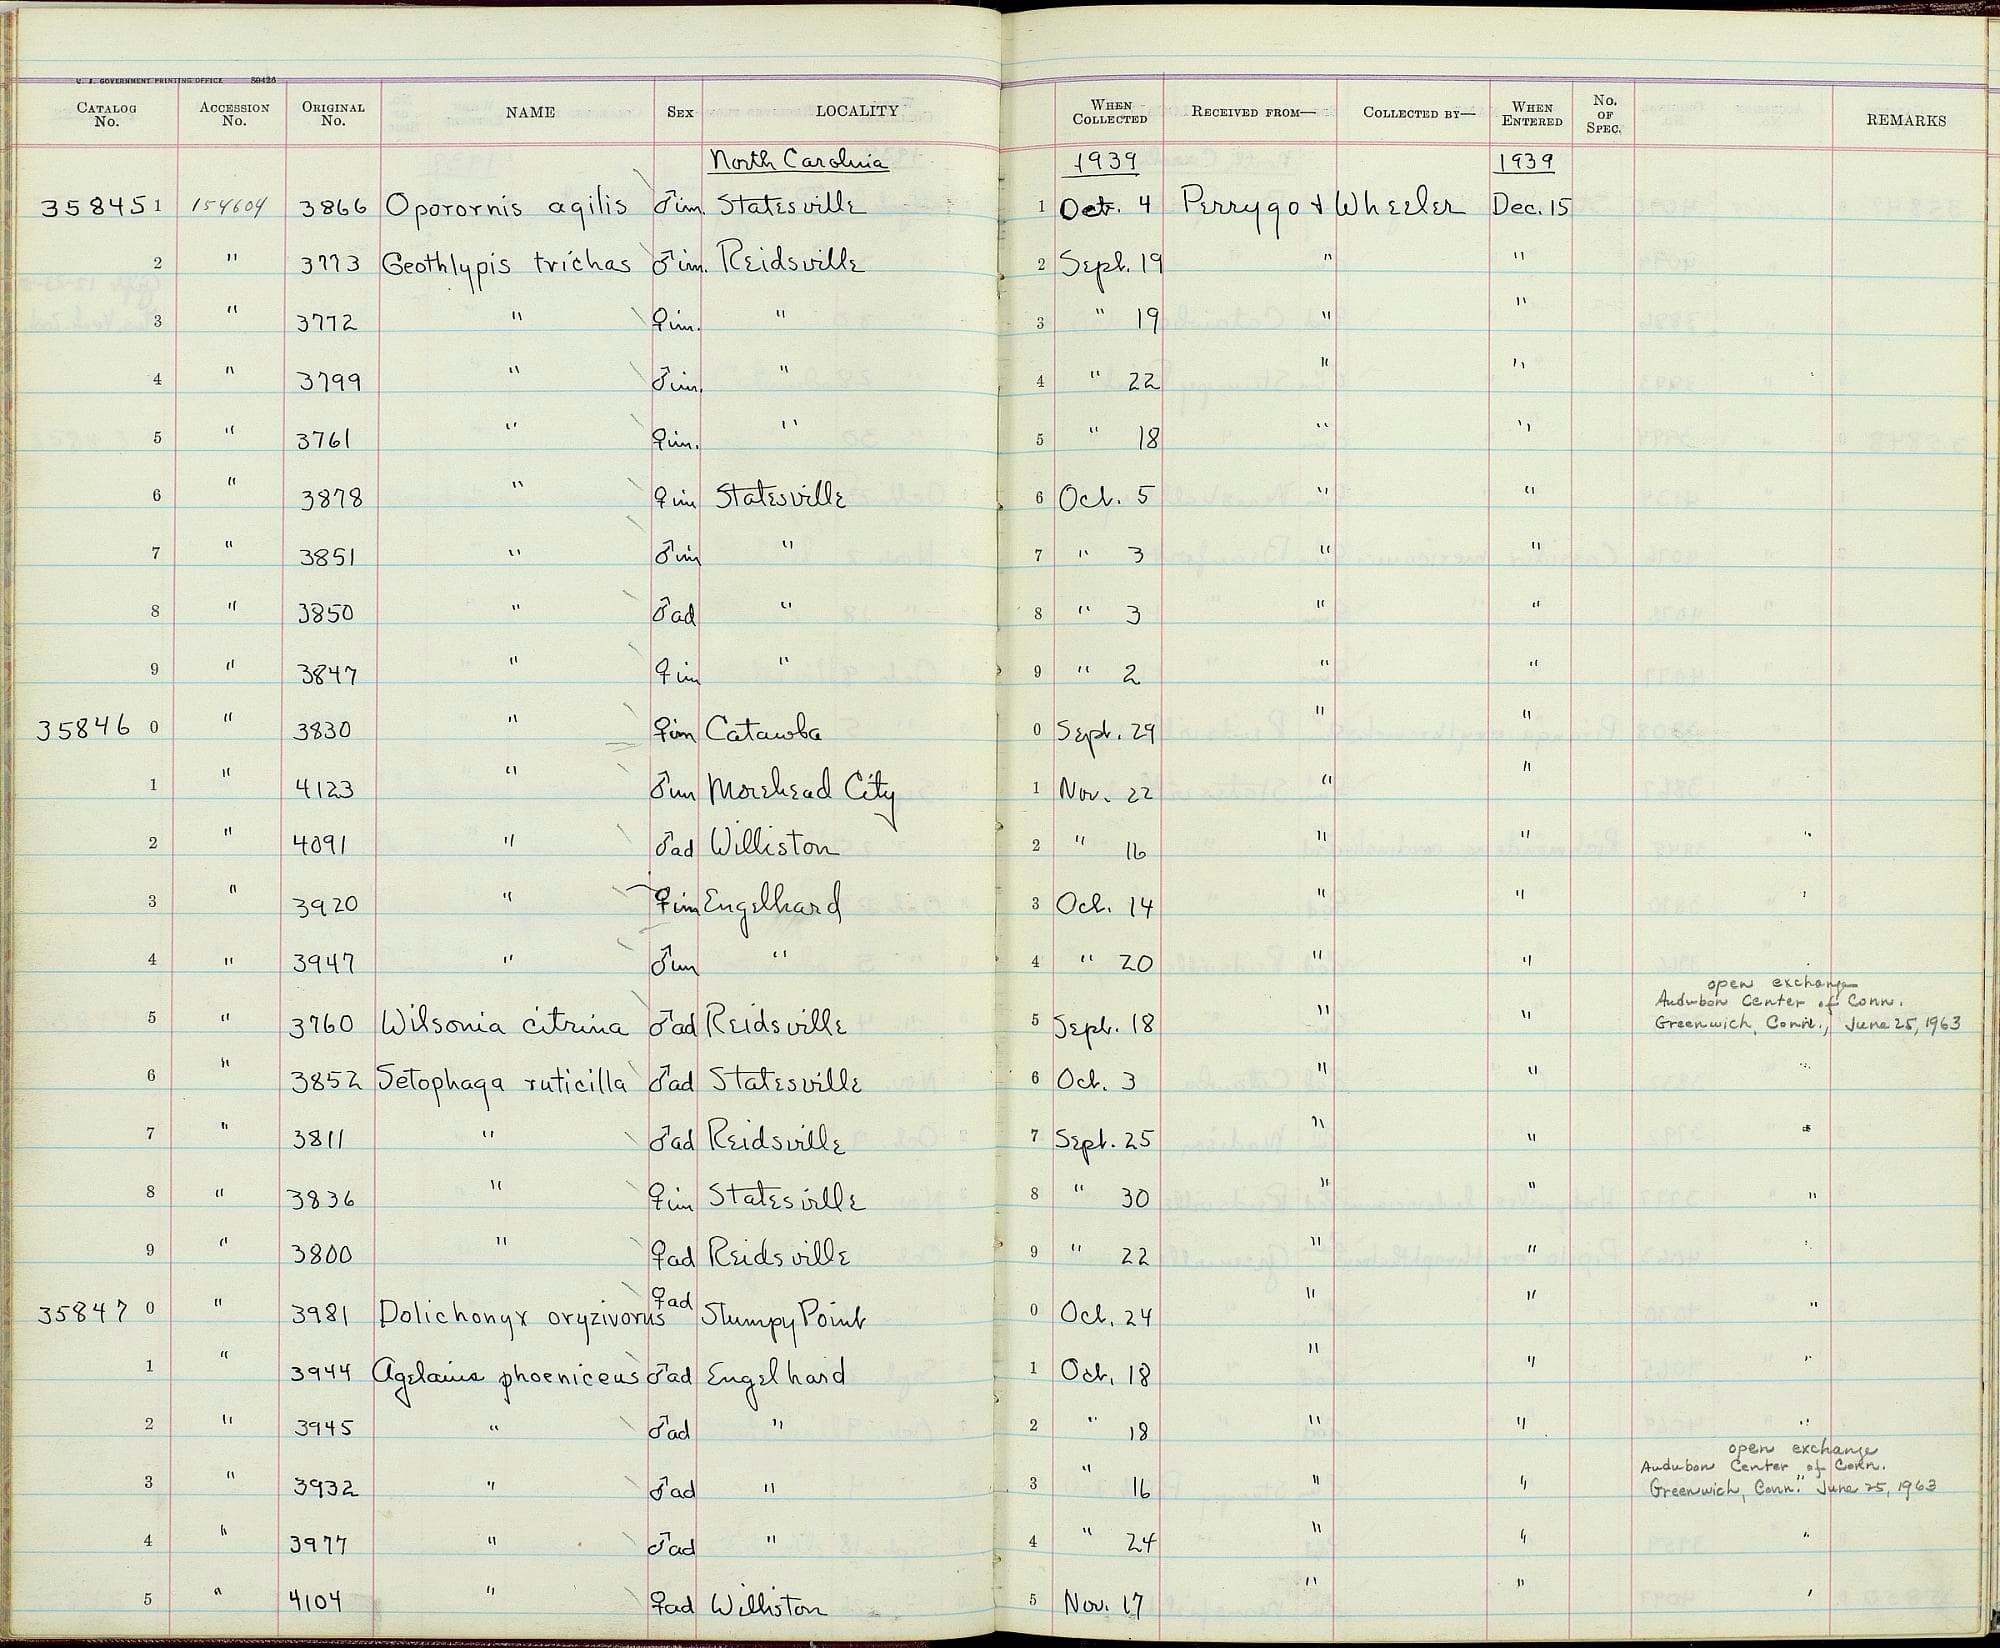 U. S. GOVERNMENT PRINTING OFFICE 89426
CATALOG No. ACCESSION No. ORIGINAL No. NAME SEX LOCALITY WHEN COLLECTED RECEIVED FROM— COLLECTED BY— WHEN ENTERED No. OF SPEC. REMARKS
North Carolina 1939 1939
35845 1 154604 3866 Oporornis agilis ♂im. Statesville 1 Oct. 4 Perrygo & Wheeler Dec. 15
2 " 3773 Geothlypis trichas ♂im. Reidsville 2 Sept. 19 " "
3 " 3772 " ♀im. " 3 " 19 " "
4 " 3799 " ♂im. " 4 " 22 " "
5 " 3761 " ♀im. " 5 " 18 " "
6 " 3878 " ♀im Statesville 6 Oct. 5 " "
7 " 3851 " ♂im " 7 " 3 " "
8 " 3850 " ♂ad " 8 " 3 " "
9 " 3847 " ♀im " 9 " 2 " "
35846 0 " 3830 " ♀im Catawba 0 Sept. 29 " "
1 " 4123 " ♂im Morehead City 1 Nov. 22 " "
2 " 4091 " ♂ad Williston 2 " 16 " "
3 " 3920 " ♀im Engelhard 3 Oct. 14 " "
4 " 3947 " ♂im " 4 " 20 " "
5 " 3760 Wilsonia citrina ♂ad Reidsville 5 Sept. 18 " "
open exchange
Audubon Center of Conn.
Greenwich, Conn., June 25, 1963
6 " 3852 Setophaga ruticilla ♂ad Statesville 6 Oct. 3 " "
7 " 3811 " ♂ad Reidsville 7 Sept. 25 " "
8 " 3836 " ♀im Statesville 8 " 30 " " "
9 " 3800 " ♀ad Reidsville 9 " 22 " "
35847 0 " 3981 Dolichonyx oryzivorus ♀ad Stumpy Point 0 Oct. 24 " " "
1 " 3944 Agelaius phoeniceus ♂ad Engelhard 1 Oct. 18 " " "
2 " 3945 " ♂ad " 2 " 18 " " "
3 " 3932 " ♂ad " 3 " 16 " "
open exchange
Audubon Center of Conn.
Greenwich, Conn. " June 25, 1963
4 " 3977 " ♂ad " 4 " 24 " " "
5 " 4104 " ♀ad Williston 5 Nov. 17 " "